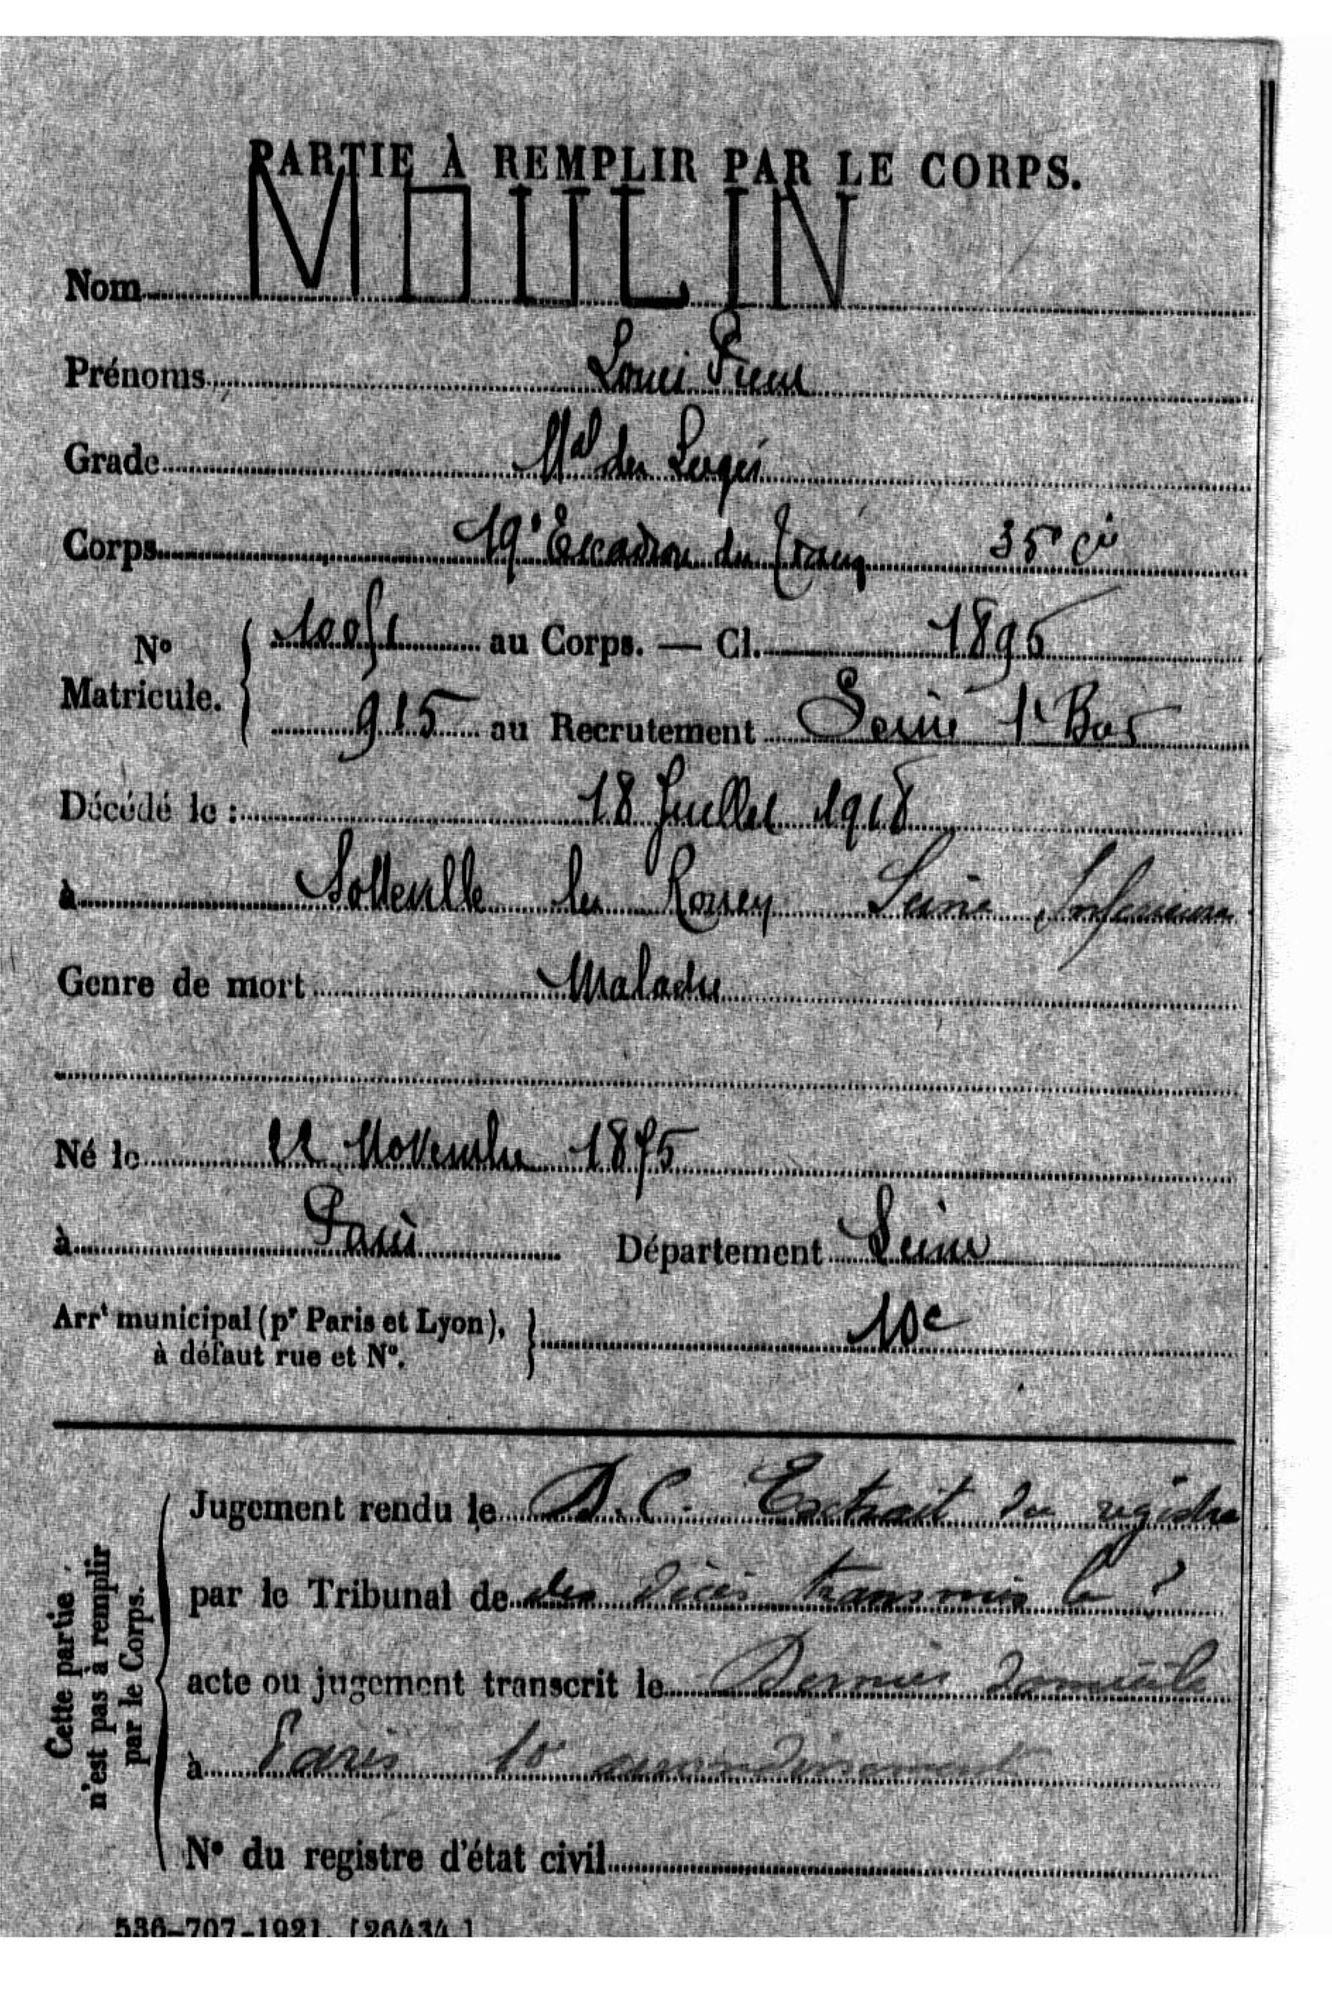 PARTIE À REMPLIR PAR LE CORPS.
Nom MOULIN
Prénoms Louis Pierre
Grade Mal des Logis
Corps 19e Escadron du Train 35e Cie
No Matricule. { au Corps. — Cl. 1895
915 au Recrutement Seine 1r Bau
Décédé le : 18 Juillet 1918
à Sotteville les Rouen Seine Inférieure
Genre de mort Maladie
Né le 22 Novembre 1875
à Paris Département Seine
Arrt municipal (pr Paris et Lyon), à défaut rue et No. } 10e
Cette partie n'est pas à remplir par le Corps.
Jugement rendu le D.C. Extrait du registre
par le Tribunal de des décès transmis le ?
acte ou jugement transcrit le Dernier domicile
à Paris 10 arrondissement
No du registre d'état civil
536-707-1921. [26434.]